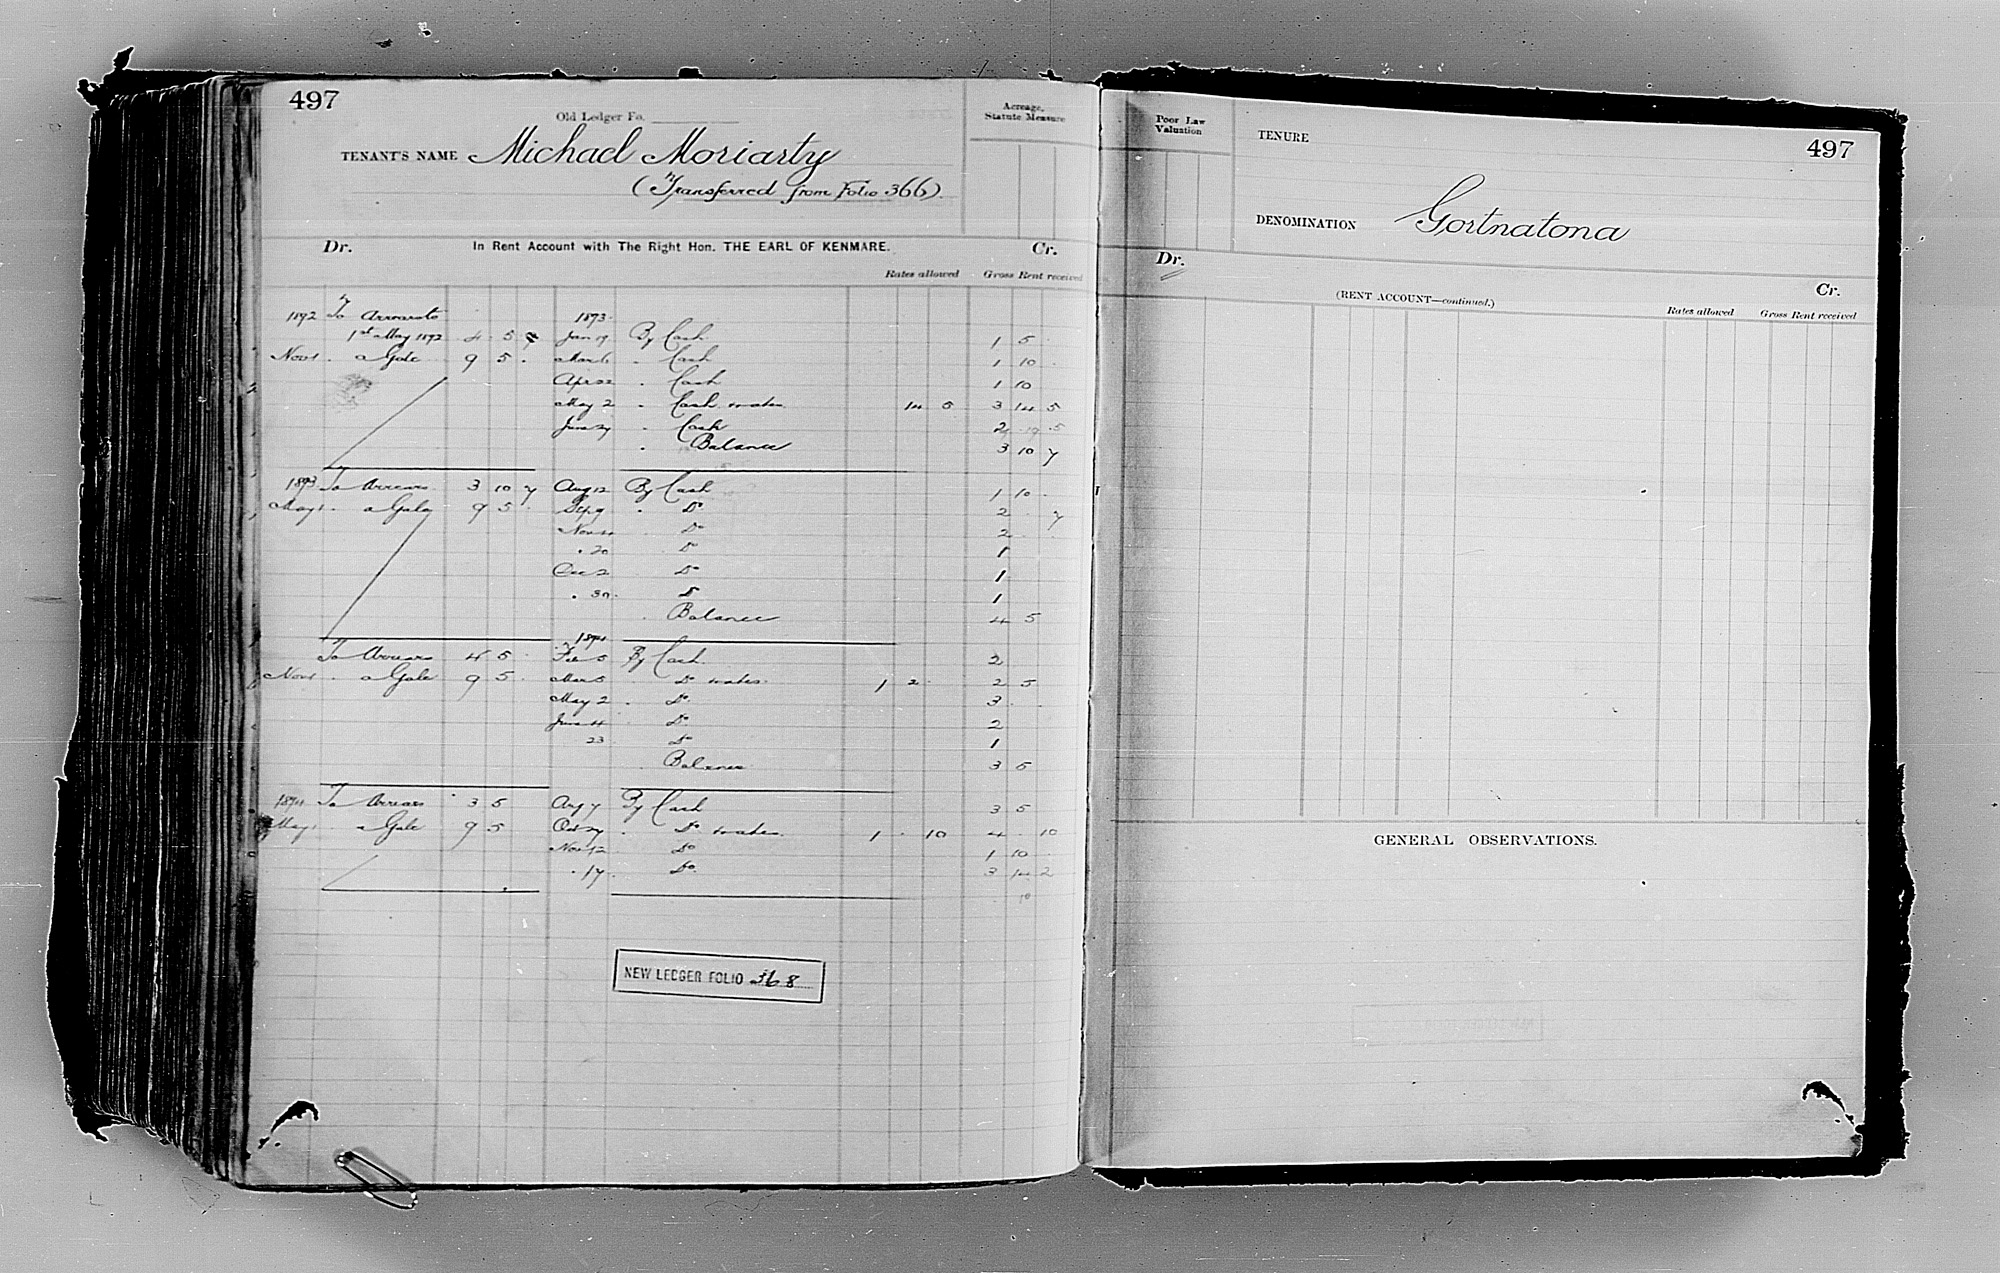 497
Old Ledger Fo.
Acreage,
Statute Measure
TENANT'S NAME Michael Moriarty
(Transferred from Folio 366)
Dr. In Rent Account with The Right Hon. THE EARL OF KENMARE. Cr.
Rates allowed Gross Rent received
1892 To Arrears to 1893
1st May 1892 4 5 7 Jan 19 By Cash 1 5
Nov 1 . a Gale 9 5 . Mar 6 . Cash 1 10 .
Apr 22 . Cash 1 10
May 2 . Cash & rates 14 5 3 14 5
June 24 . Cash 2 19 5
. Balance 3 10 7
1893 To Arrears 3 10 7 Aug 12 By Cash 1 10 .
May 1 . a Gale 9 5 . Sep 9 . Do 2 . 7
Nov Do 2
. 20 Do 1
Dec 2 Do 1
. 30 Do 1
Balance 4 5
1894
To Arrears 4 5 Feb 5 By Cash 2
Nov 1 . a Gale 9 5 . Mar 5 Do & rates 1 2 2 5
May 2 . Do 3
June 4 . Do 2
23 Do 1
Balance 3 5
1894 To Arrears 3 5 Aug 7 By Cash 3 5
May 1 . a Gale 9 5 Oct 27 . Do & rates 1 . 10 4 . 10
Nov 12 Do 1 10
. 17 Do 3 14 2
10
NEW LEDGER FOLIO 368
Poor Law
Valuation
TENURE
497
DENOMINATION Gortnatona
Dr.
Cr.
(RENT ACCOUNT—continued.)
Rates allowed Gross Rent received
GENERAL OBSERVATIONS.